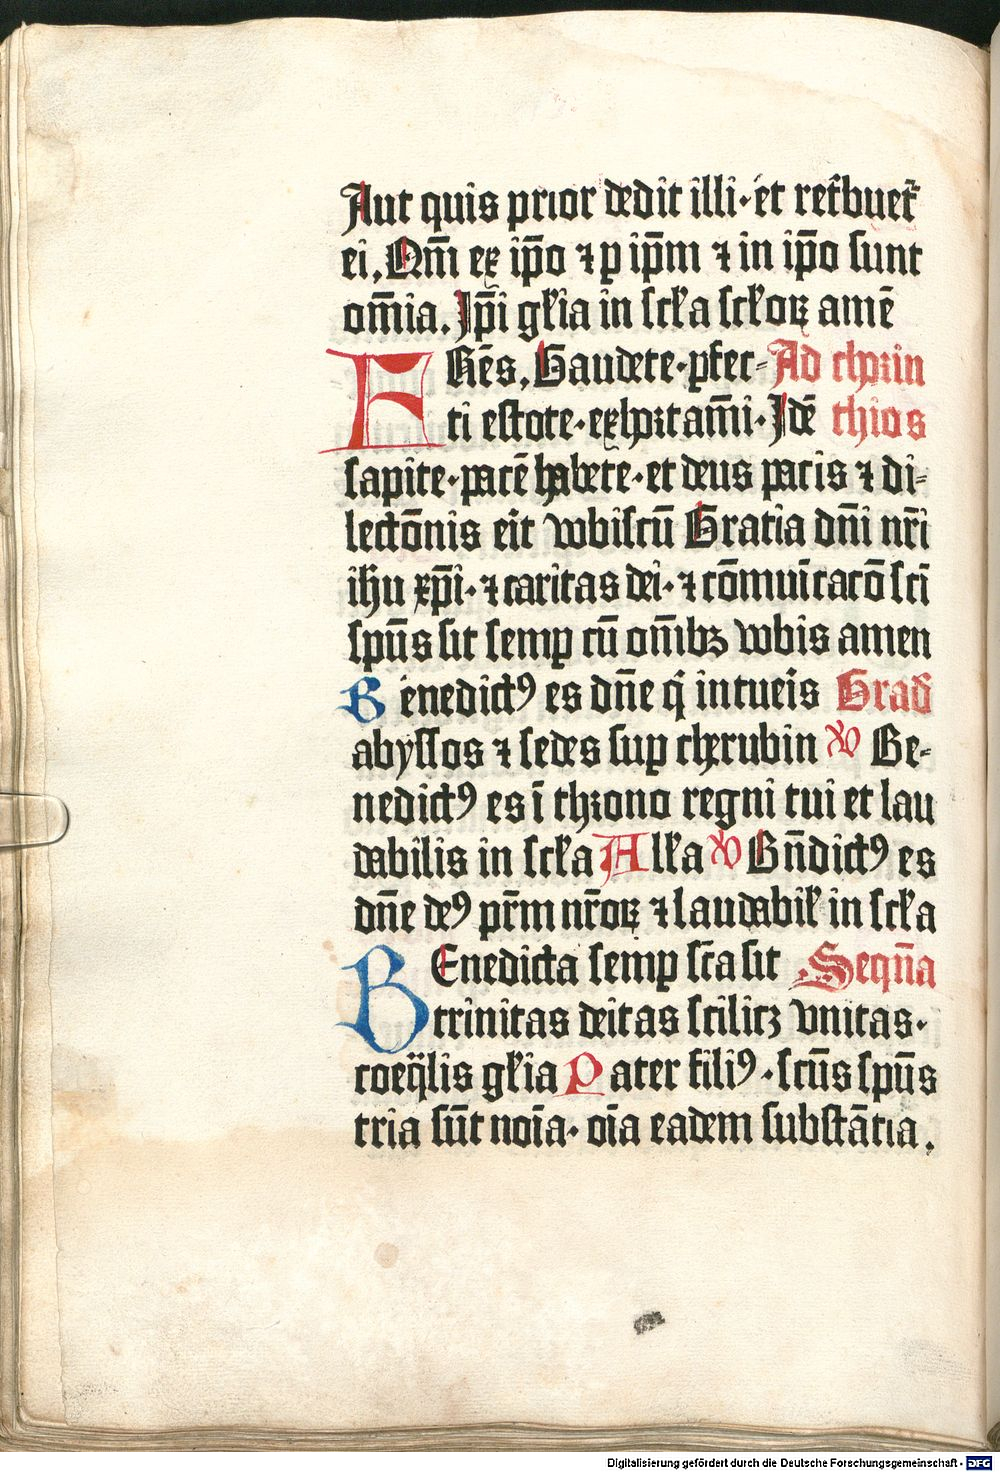 Aut quis prior dedit illi · et ret͛buet͛
ei, Qm̅ ex ip̅o ⁊ ꝑ ip̅m ⁊ in ip̅o sunt
om̅ia. Ip̅i gl̅ia in scl̅a scl̅oꝝ amē
FRēs, Gaudete · ꝑfec- Ad chorin
ti estote · exhortam̅i · Idē thios
sapite · pacē habete · et deus pacis ⁊ di-
lectōnis erit vobiscū Gratia dn̅i nr̅i
ihu xp̅i · ⁊ caritas dei · ⁊ cōmuīcacō scī
spūs sit semꝑ cū om̅ibꝫ vobis amen
Benedictꝰ es dn̅e q̇ intueris Grad̅
abyssos ⁊ sedes suꝑ cherubin ℣ Be-
nedictꝰ es ī throno regni tui et lau
dabilis in scl̅a All̅a ℣ Bn̅dictꝰ es
dn̅e deꝰ pr̅m nr̅oꝝ ⁊ laudabil̅ in scl̅a
BEnedicta semꝑ sc̅a sit Seqn̅a
trinitas deitas scilicꝫ vnitas ·
coeq̈lis gl̅ia Pater filiꝰ · scūs spūs
tria sūt noīa · oīa eadem substātia.
Digitalisierung gefördert durch die Deutsche Forschungsgemeinschaft - DFG